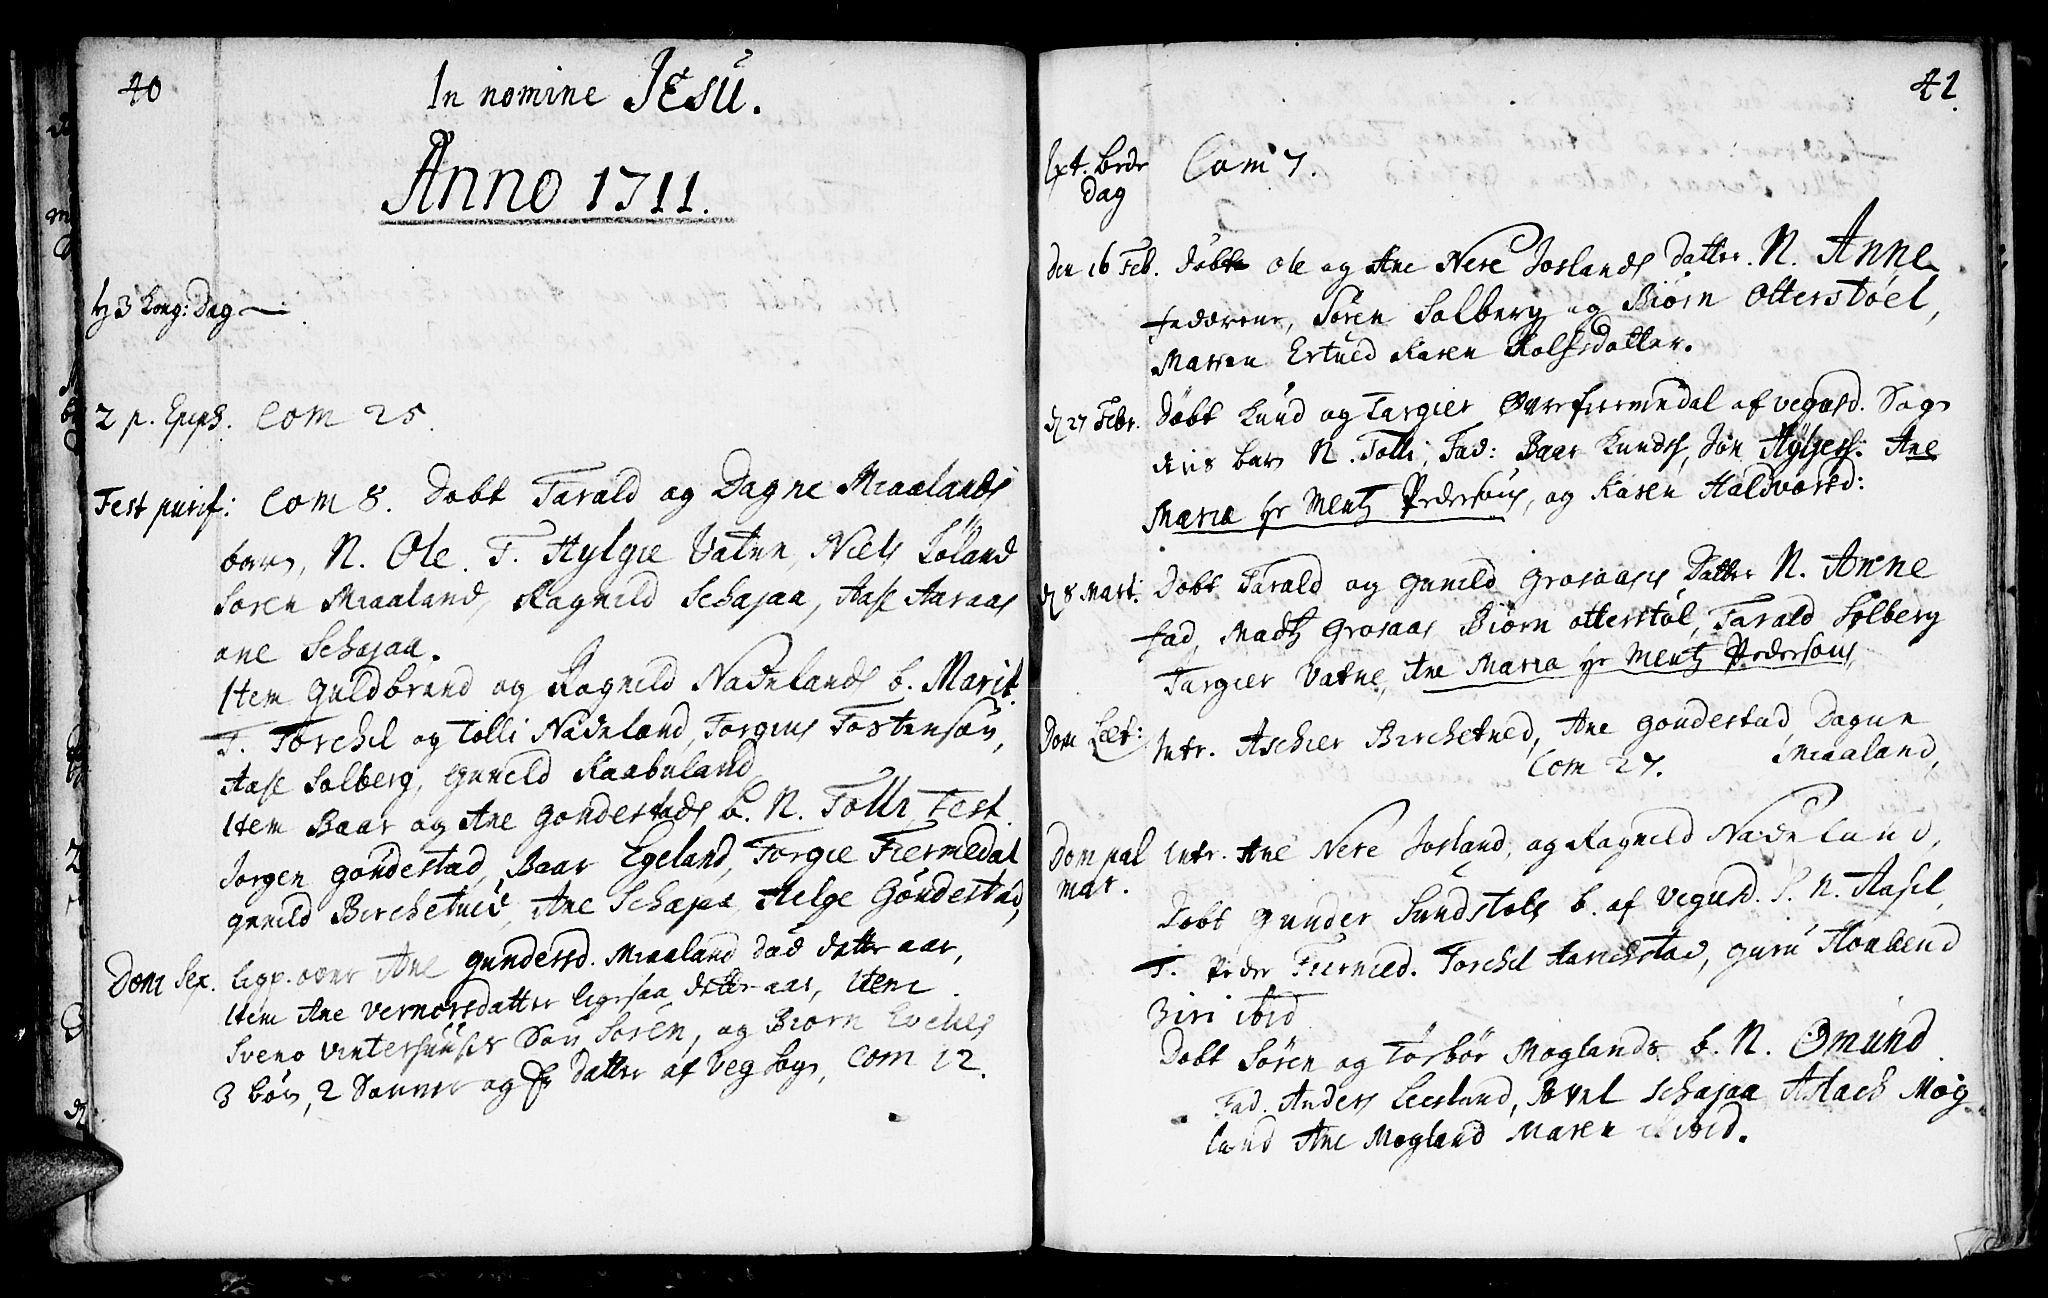 40
In nomine JESU.
Anno 1711.
3 Kong: Dag
2 p. Epiph. Com 25.
Fest purif: Com 8. Døbt Tarald og Dagne Miaalands
barn, N. Ole. T. Hylgie Vatne, Niels Søland
Søren Miaaland, Ragnild Schajaa, Aase Aaraas
ane Schajaa.
Item Guldbrand og Ragnild Nadelands b. Marit.
T. Torchel og Tolli Nadeland, Torgius Tostensøn,
Aase Solberg, Guneld Raabuland
Item Baar og Ane Gondestads b. N. Tolli, Test.
Jorgen Gondestad, Baar Egeland, Torgie Fiermedal
guneld Birchetued, Ane Schajaa Helge Gondestad,
Dom Sex. ligp. over Ane gundersd. Miaaland død dette aar,
Item Ane Vernorsdatter ligesaa dette aar, Item
Sveno Vintershuuses Søn Søren, og Biørn Evches
3 børn, 2 Sønner og Datter af Veg Sogn, Com 12.
41.
Ext. bede Com 7.
Dag
Den 16 Feb. døbt Ole og Ane Nere Joslands datter. N. Anne
fadderne, Søren Solberg og Biørn Otterstøel,
Maren Ertued Karen Rolfsdatter.
d 27 Febr. Døbt Knud og Targier Øvrefiermedal af Vegusd. Sog
dnis barn N. Tolli, Fad: Baar Knuds, Jon Hylgess: Ane
Maria Hr Mentz Pedersøns, og Karen Haldvorsd:
d 8 Mart. Døbt Tarald og Guneld Grosaases Datter N. Anne
fad, Madtz Grosaas Biørn Otterstøl, Tarald Solberg
Targier Vatne, Ane Maria Hr Mentz Pedersøns,
Dom Læt: Intr. Aschier Birchetued, Ane Gondestad, Dagne
Com 27. Miaaland,
Dom pal Intr. Ane Nere Josland, og Ragnild Nadeland,
mar.
Døbt Gunder Sundstøls b. af Vegusd. S. N. Aasel,
T. Peder Fiermed. Torchel Aarichstad, Guru
Biri ibid
Døbt Søren og Torbør Moglands b. N. Omund.
Fad. Anders Leesland, Schajaa Aslach Mog
land Ane Mogland Maren ibid.